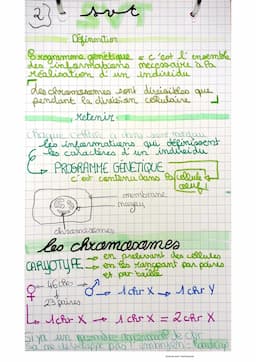 2) SVT
svt
Définition
Programme génétique = c'est l'ensemble
des informations nécessaire à la
réalisation d'un individu
Les chromosomes sont visibles que
pendant la division cellulaire
retenir
Chaque cellule a dans son noyau
les informations qui définissent
les caractères d'un individu
→ PROGRAMME GÉNÉTIQUE
c'est contenu dans la cellule
oeuf !
membrane
noyau
chromosomes
les chromosomes
CARYOTYPE → en prélevant des cellules
→ en les rangeant par paires
et par taille
♀ 46 chr ♂ → 1 chr X → 1 chr Y
23 paires
→ 1 chr X → 1 chr X = 2 chr X
si ya un nombre anormal de chr